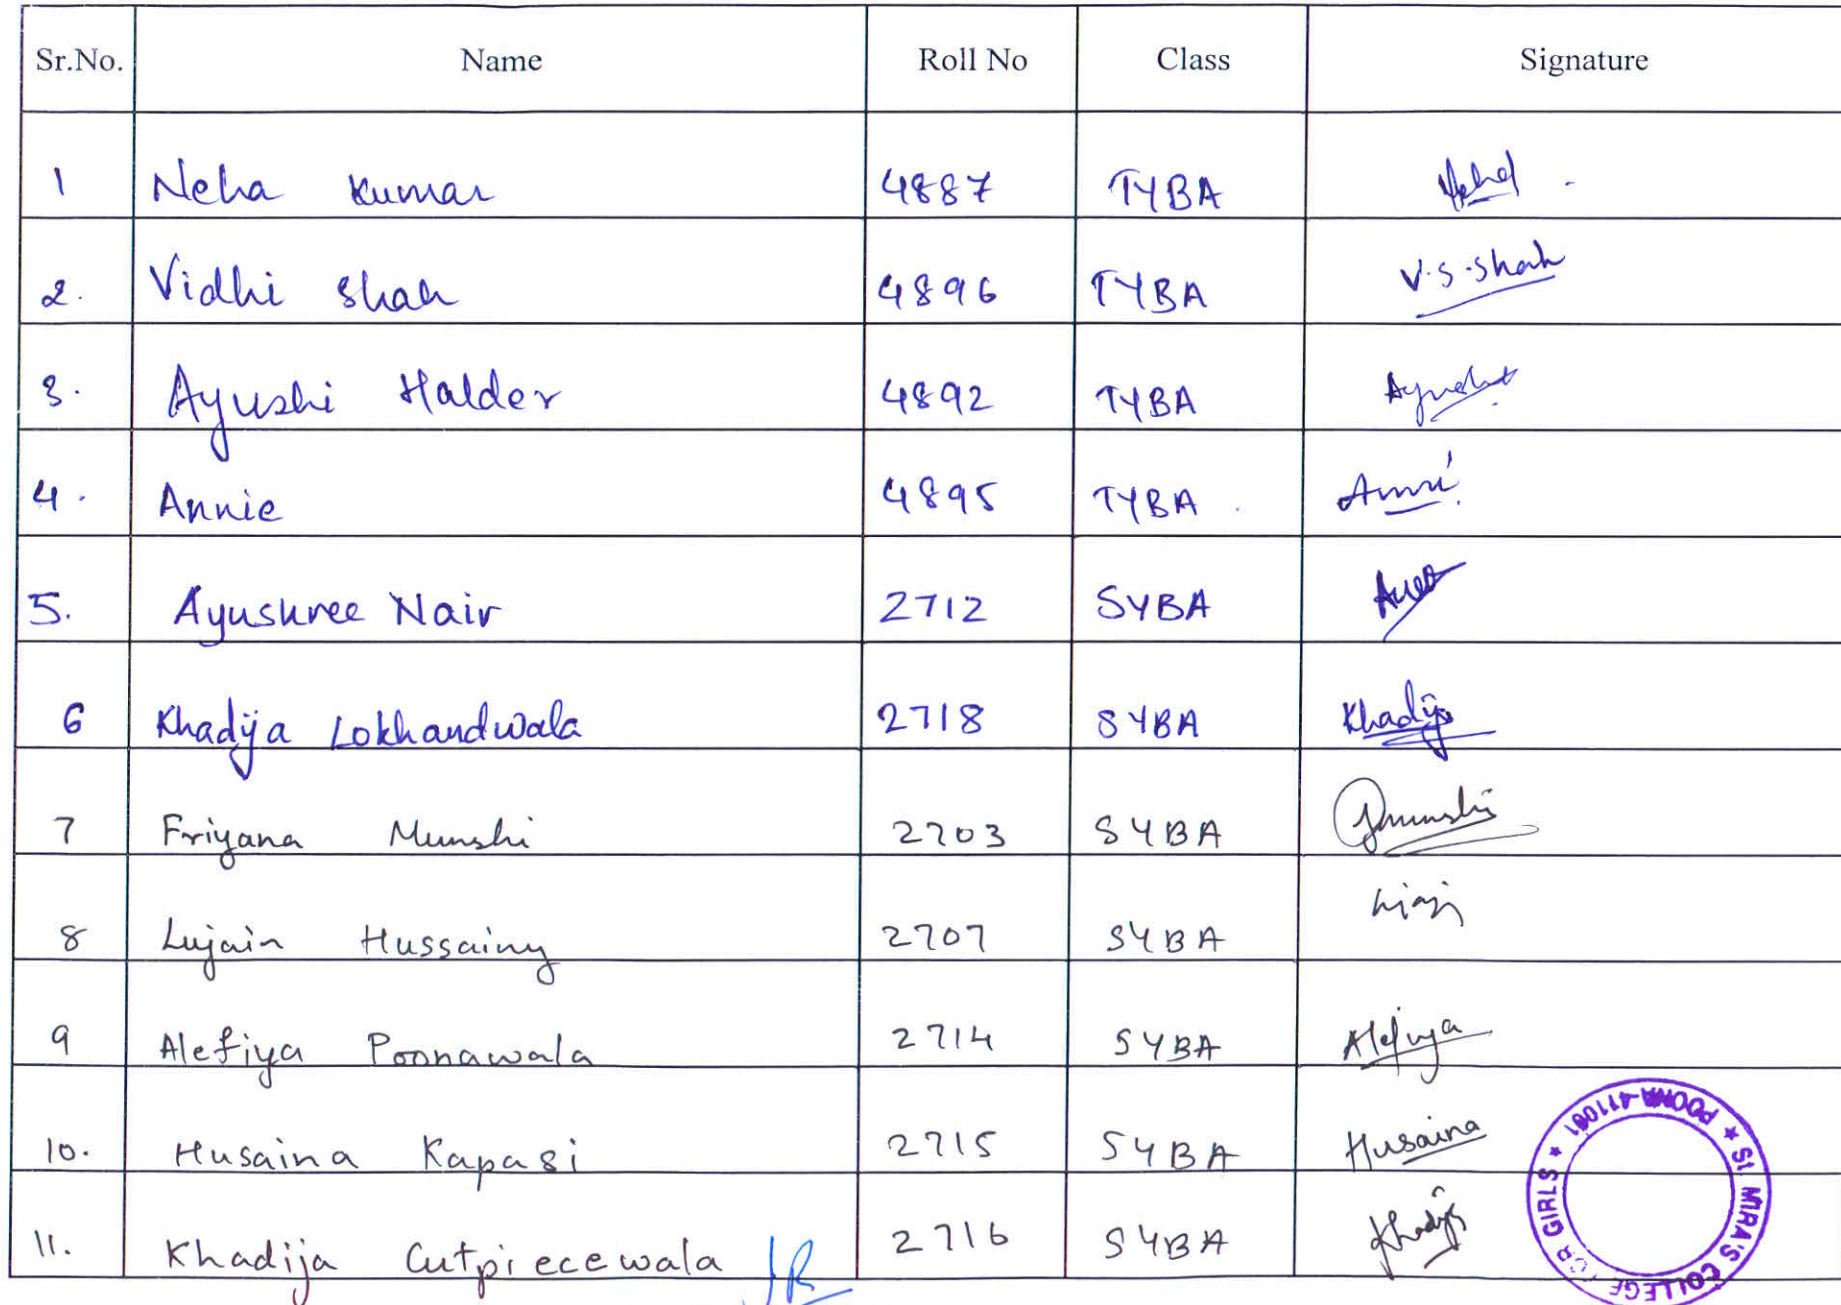 Sr.No. Name Roll No Class Signature
1 Neha Kumar 4887 TYBA Neha
2. Vidhi Shah 4896 TYBA V.S.Shah
3. Ayushi Halder 4892 TYBA Ayushi
4. Annie 4895 TYBA Annie
5. Ayushree Nair 2712 SYBA
6 Khadija Lokhandwala 2718 SYBA Khadija
7 Friyana Munshi 2703 SYBA Fmunshi
8 Lujain Hussainy 2707 SYBA
9 Alefiya Poonawala 2714 SYBA Alefiya
10. Husaina Kapasi 2715 SYBA Husaina
11. Khadija Cutpiecewala 2716 SYBA Khadija
★ St. MIRA'S COLLEGE FOR GIRLS ★ POONA-411001